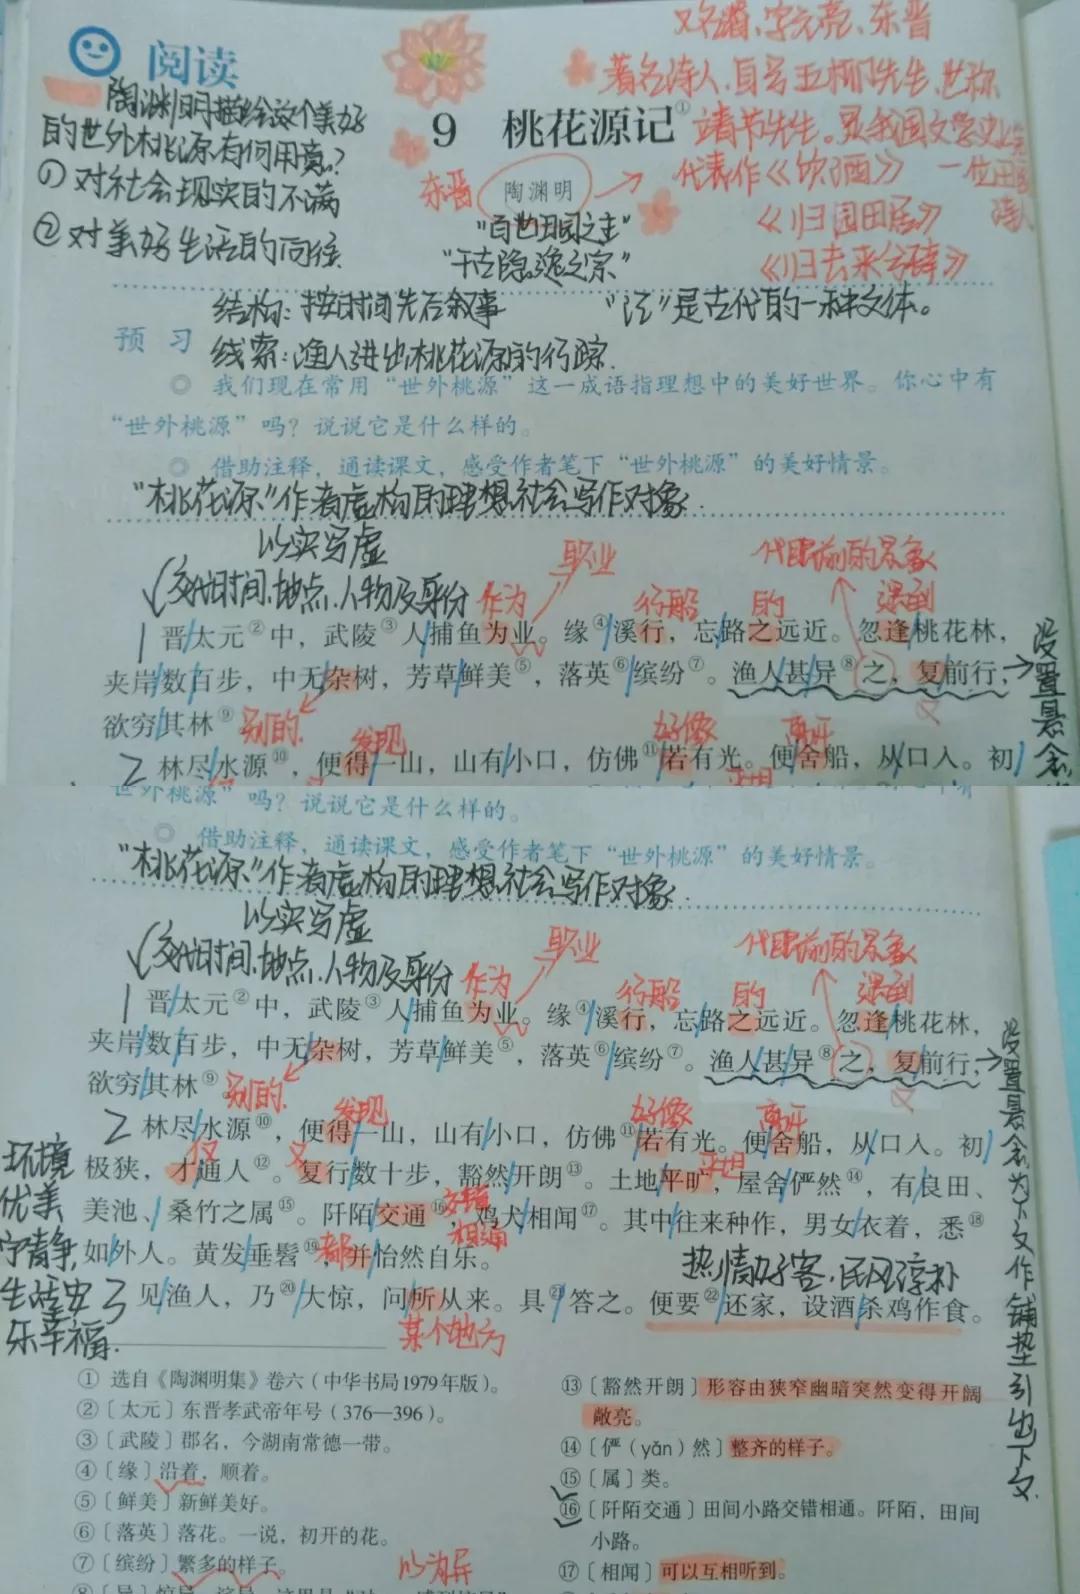 阅读
又名潜、字元亮、东晋
著名诗人,自号五柳先生,世称
靖节先生。是我国文学史上第
一位田园
诗人
陶渊明描绘这个美好
的世外桃源有何用意?
① 对社会现实的不满
② 对美好生活的向往
9 桃花源记①
东晋
陶渊明
代表作《饮酒》
《归园田居》
《归去来兮辞》
“百世田园之主”
“千古隐逸之宗”
结构:按时间先后叙事
“记”是古代的一种文体。
预习
线索:渔人进出桃花源的行踪.
◎ 我们现在常用“世外桃源”这一成语指理想中的美好世界。你心中有
“世外桃源”吗?说说它是什么样的。
◎ 借助注释,通读课文,感受作者笔下“世外桃源”的美好情景。
“桃花源”作者虚构的理想社会写作对象.
以实写虚
职业
代眼前的景象
交代时间、地点、人物及身份
作为
行船
的
遇到
1 晋太元②中,武陵③人捕鱼为业。缘④溪行,忘路之远近。忽逢桃花林,
夹岸数百步,中无杂树,芳草鲜美⑤,落英⑥缤纷⑦。渔人甚异⑧之,复前行,
又
欲穷其林⑨
别的.
发现
好像
离开
设置悬念
2 林尽水源⑩,便得一山,山有小口,仿佛⑪若有光。便舍船,从口入。初
世外桃源”吗?说说它是什么样的。
◎ 借助注释,通读课文,感受作者笔下“世外桃源”的美好情景。
“桃花源”作者虚构的理想社会写作对象.
以实写虚
职业
代眼前的景象
交代时间、地点、人物及身份
作为
行船
的
遇到
1 晋太元②中,武陵③人捕鱼为业。缘④溪行,忘路之远近。忽逢桃花林,
夹岸数百步,中无杂树,芳草鲜美⑤,落英⑥缤纷⑦。渔人甚异⑧之,复前行,
又
欲穷其林⑨
别的.
发现
好像
离开
2 林尽水源⑩,便得一山,山有小口,仿佛⑪若有光。便舍船,从口入。初
仅
又
平坦
极狭,才通人⑫。复行数十步,豁然开朗⑬。土地平旷,屋舍俨然⑭,有良田、
交错
相通
美池、桑竹之属⑮。阡陌交通⑯,鸡犬相闻⑰。其中往来种作,男女衣着,悉⑱
都
如外人。黄发垂髫⑲,并怡然自乐。
热情好客,民风淳朴
3 见渔人,乃⑳大惊,问所从来。具㉑答之。便要㉒还家,设酒杀鸡作食。
某个地方
环境
优美
宁静,
生活安
乐幸福.
设置悬念为下文作铺垫引出下文.
① 选自《陶渊明集》卷六(中华书局1979年版)。
②〔太元〕东晋孝武帝年号(376—396)。
③〔武陵〕郡名,今湖南常德一带。
④〔缘〕沿着,顺着。
⑤〔鲜美〕新鲜美好。
⑥〔落英〕落花。一说,初开的花。
⑦〔缤纷〕繁多的样子。
以为异
⑬〔豁然开朗〕形容由狭窄幽暗突然变得开阔
敞亮。
⑭〔俨(yǎn)然〕整齐的样子。
⑮〔属〕类。
⑯〔阡陌交通〕田间小路交错相通。阡陌,田间
小路。
⑰〔相闻〕可以互相听到。